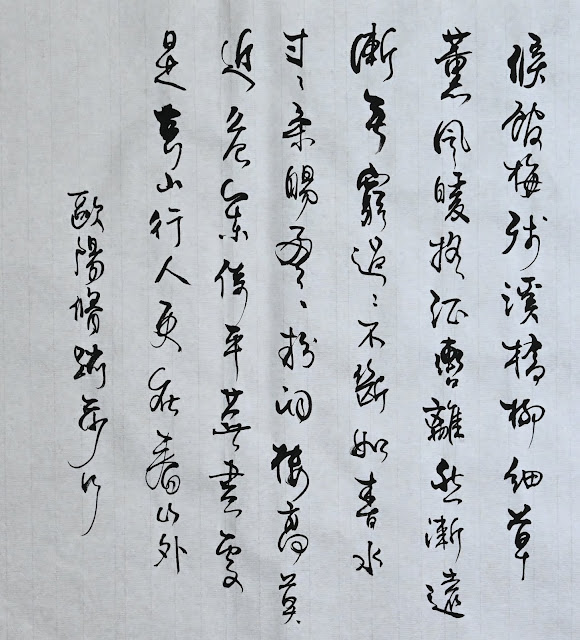 候館梅殘溪橋柳細草
薰風暖搖征轡離愁漸遠
漸無窮迢〻不斷如春水
寸〻柔腸盈〻粉淚樓高莫
近危闌倚平蕪盡處
是春山行人更在春山外
歐陽脩踏莎行